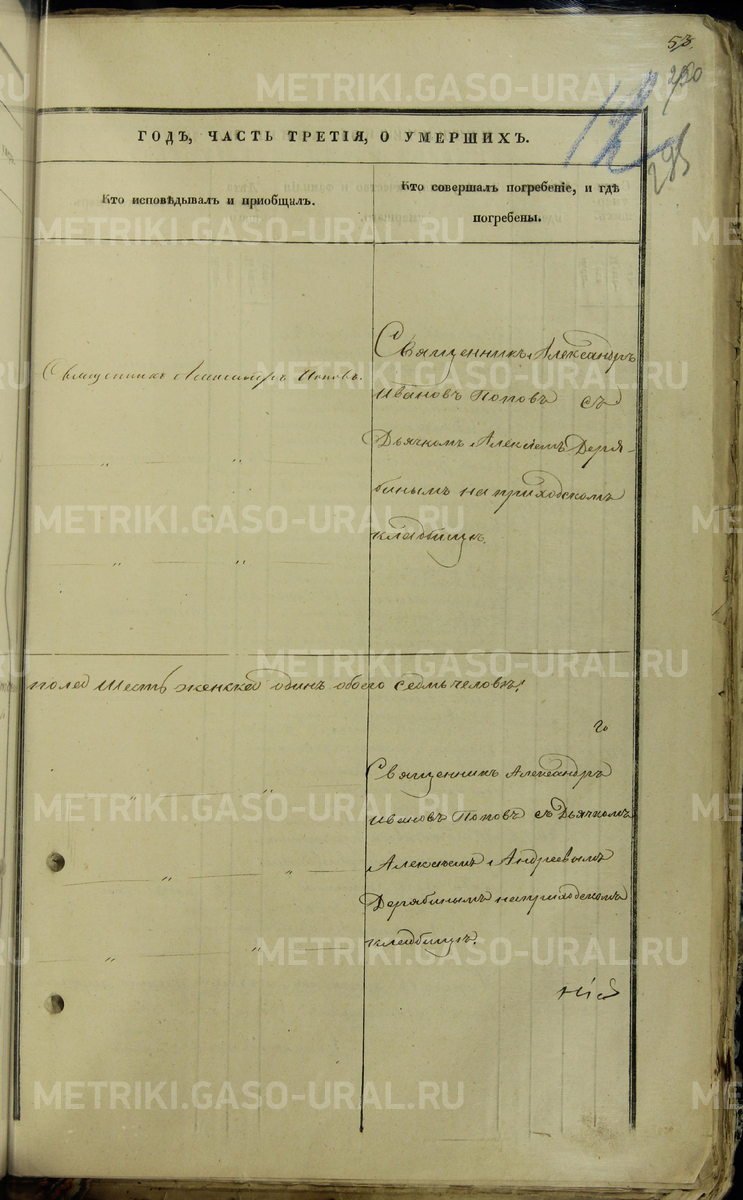 53.
290
12
295
ГОДЪ, ЧАСТЬ ТРЕТІЯ, О УМЕРШИХЪ.
Кто исповѣдывалъ и пріобщалъ.
Кто совершалъ погребеніе, и гдѣ
погребены.
Священникъ Александръ
Священникъ Александръ Поповъ.
Ивановъ Поповъ съ
Дьячкомъ Алексіемъ Деря-
бинымъ на приходскомъ
кладбищѣ.
пола шесть женска одинъ обоего седмь человѣ:
го
Священникъ Александръ
Ивановъ Поповъ съ Дьячкомъ
Алексѣемъ Андреевымъ
Дерябинымъ на приходскомъ
кладбищѣ.
METRIKI.GASO-URAL.RU